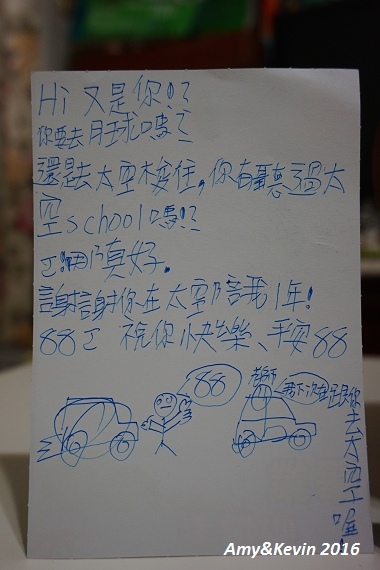 Hi 又是你!?
你要去月球嗎?
還是去太空梭住,你有聽過太
空school嗎!?
真好.
謝謝你在太空陪我1年!
88ㄛ 祝你快樂、平安88
88
老師
我下次在跟你
去太空喔
Amy&Kevin 2016